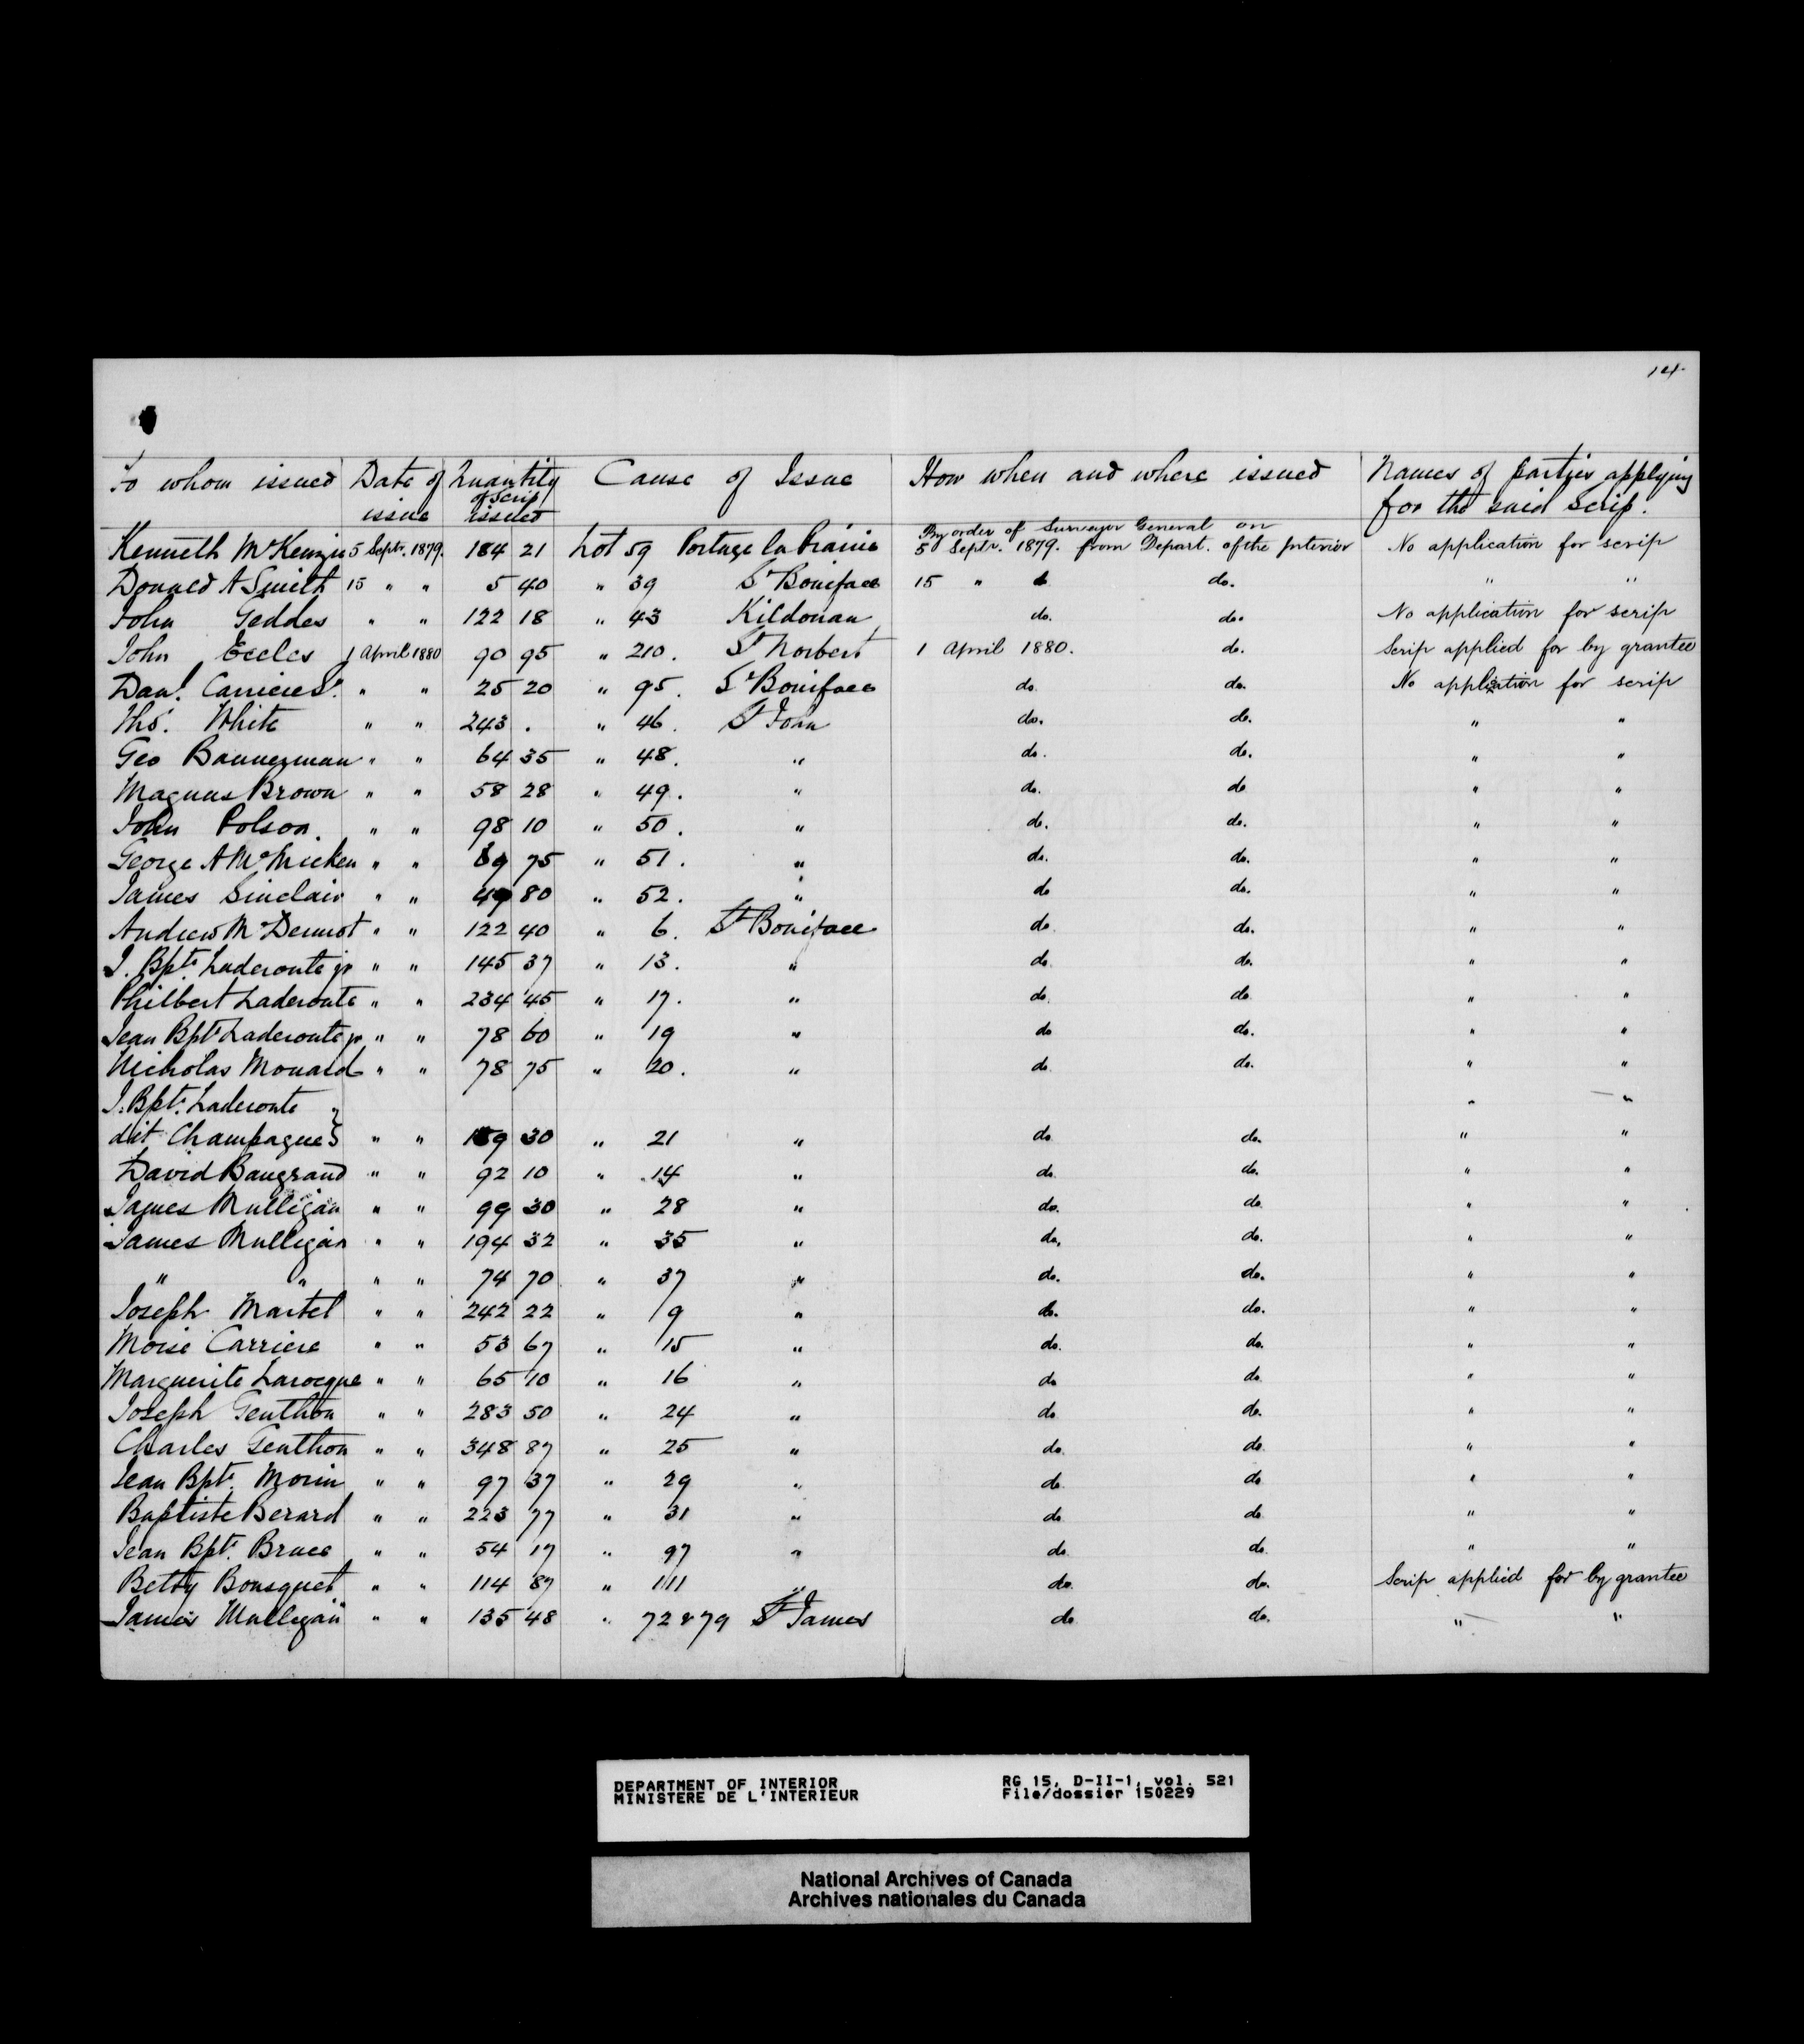 14.
To whom issued | Date of issue | Quantity of Scrip issued | Cause of Issue | How when and where issued | Names of parties applying for the said Scrip.
Kenneth McKenzie 5 Septr. 1879. 184 21 Lot 59 Portage la Prairie By order of Surveyor General on 5 Septr. 1879. from Depart. of the Interior No application for scrip
Donald A Smith 15 " " 5 40 " 39 St Boniface 15 " do. " "
John Geddes " " 122 18 " 43 Kildonan do. do. No application for scrip
John Eccles 1 April 1880 90 95 " 210. St Norbert 1 April 1880. do. Scrip applied for by grantee
Danl. Carriere " " 25 20 " 95. St Boniface do. do. No application for scrip
Thos. White " " 243 . " 46. St John do. do. " "
Geo Bannerman " " 64 35 " 48. " do. do. " "
Magnus Brown " " 58 28 " 49. " do. do " "
John Polson. " " 98 10 " 50. " do. do. " "
George A McMicken " " 89 75 " 51. " do. do. " "
James Sinclair " " 49 80 " 52. " do do. " "
Andrew McDermot " " 122 40 " 6. St Boniface do do. " "
J. Bpte. Laderoute jr " " 145 37 " 13. " do. do. " "
Philbert Laderoute " " 234 45 " 17. " do. do " "
Jean Bpte Laderoute jr " " 78 60 " 19 " do do. " "
Nicholas Monard " " 78 75 " 20. " do do. " "
J. Bpte. Laderoute " "
dit Champagne } " " 189 30 " 21 " do do. " "
David Baugrand " " 92 10 " 14 " do. do. " "
James Mulligan " " 99 30 " 28 " do. do. " "
James Mulligan " " 194 32 " 35 " do. do. " "
" " " " 74 70 " 37 " do. do. " "
Joseph Martel " " 242 22 " 9 " do. do. " "
Moise Carriere " " 53 67 " 15 " do. do. " "
Marguerite Larocque " " 65 10 " 16 " do do. " "
Joseph Genthon " " 283 50 " 24 " do do. " "
Charles Genthon " " 348 87 " 25 " do. do. " "
Jean Bpte. Morin " " 97 37 " 29 " do. do " "
Baptiste Berard " " 223 77 " 31 " do do " "
Jean Bpt. Bruce " " 54 17 " 97 " do. do. " "
Betsy Bousquet " " 114 87 " 111 " do. do. Scrip applied for by grantee
James Mulligan " " 135 48 " 72 & 79 St James do do. " "
DEPARTMENT OF INTERIOR
MINISTERE DE L'INTERIEUR
RG 15, D-II-1, vol. 521
File/dossier 150229
National Archives of Canada
Archives nationales du Canada